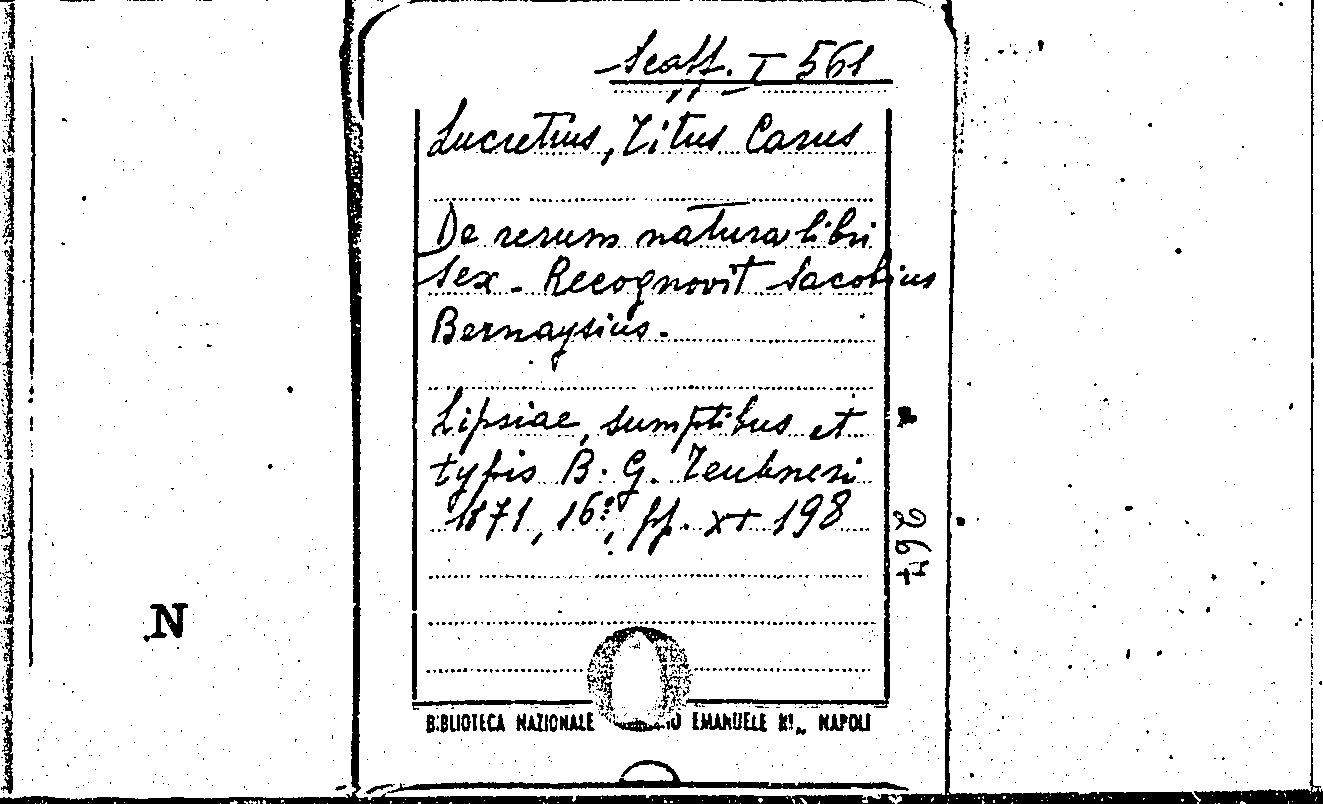 Scaff. I 561
Lucretius, Titus Carus
De rerum natura libri
sex - Recognovit Iacobius
Bernaysius.
Lipsiae, sumptibus et
typis B. G. Teubneri
1871, 16º, pp. XI 198
267
N
BIBLIOTECA NAZIONALE EMANUELE NAPOLI